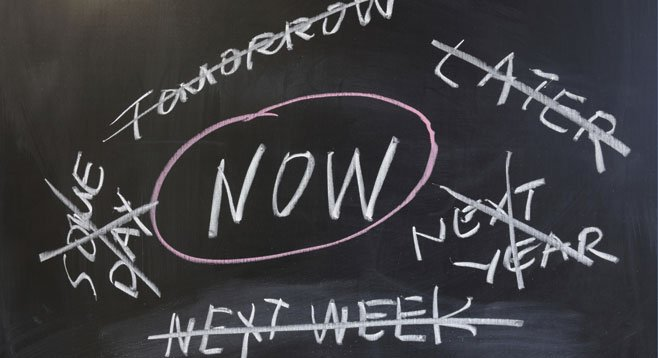 TOMORROW
LATER
NOW
SOME
DAY
NEXT
YEAR
NEXT WEEK